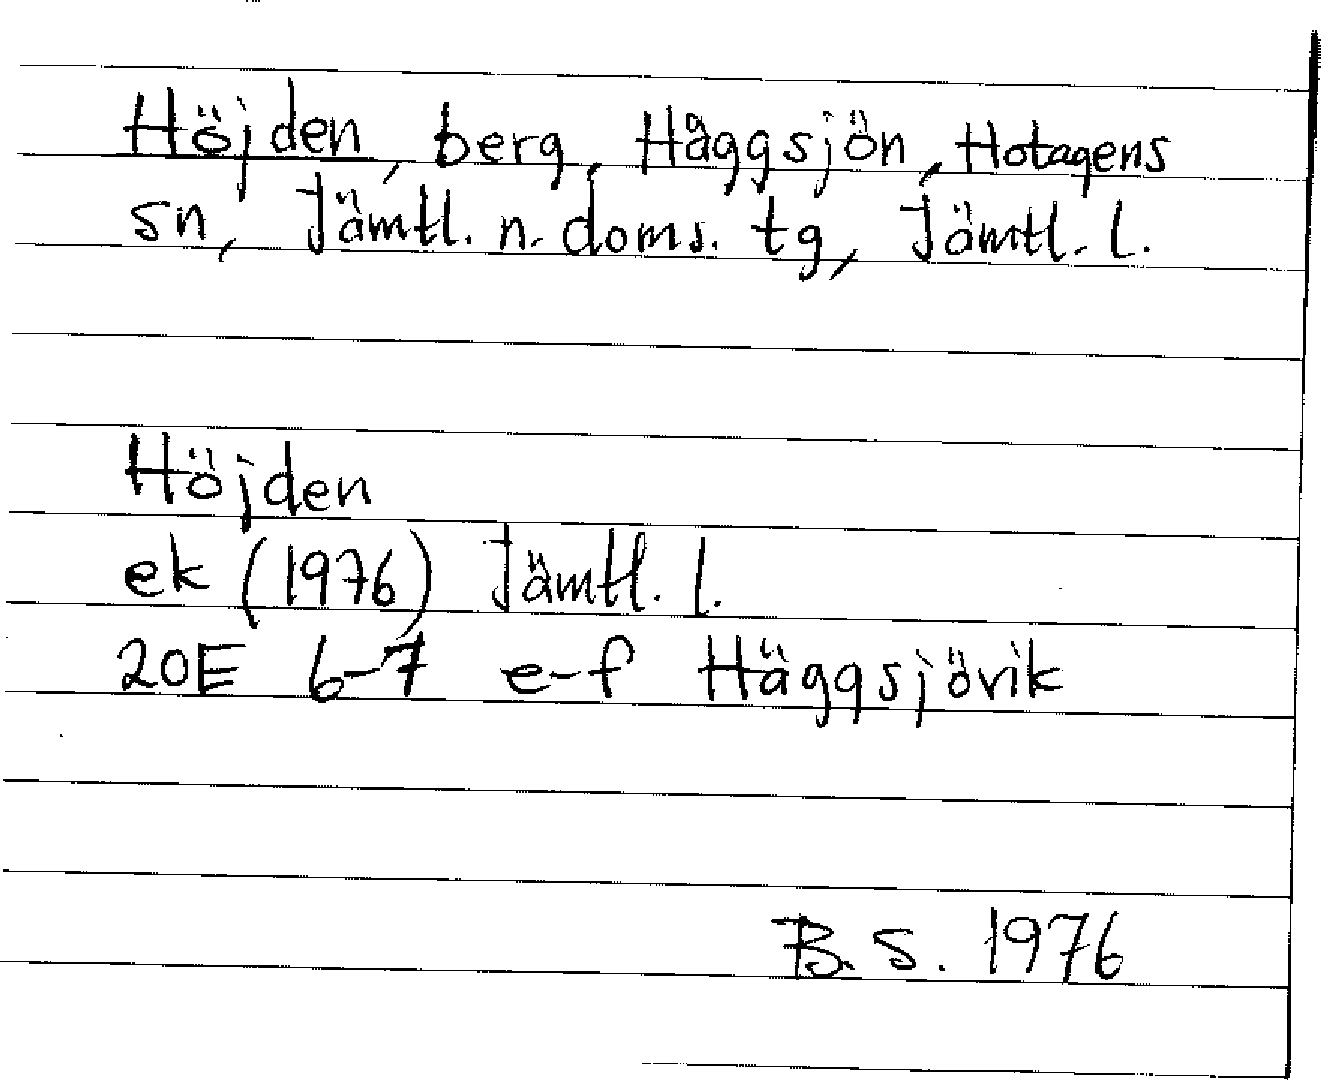 Höjden, berg, Häggsjön, Hotagens
sn, Jämtl. n. doms. tg, Jämtl. l.
Höjden
ek (1976) Jämtl. l.
20E 6-7 e-f Häggsjövik
B. S. 1976